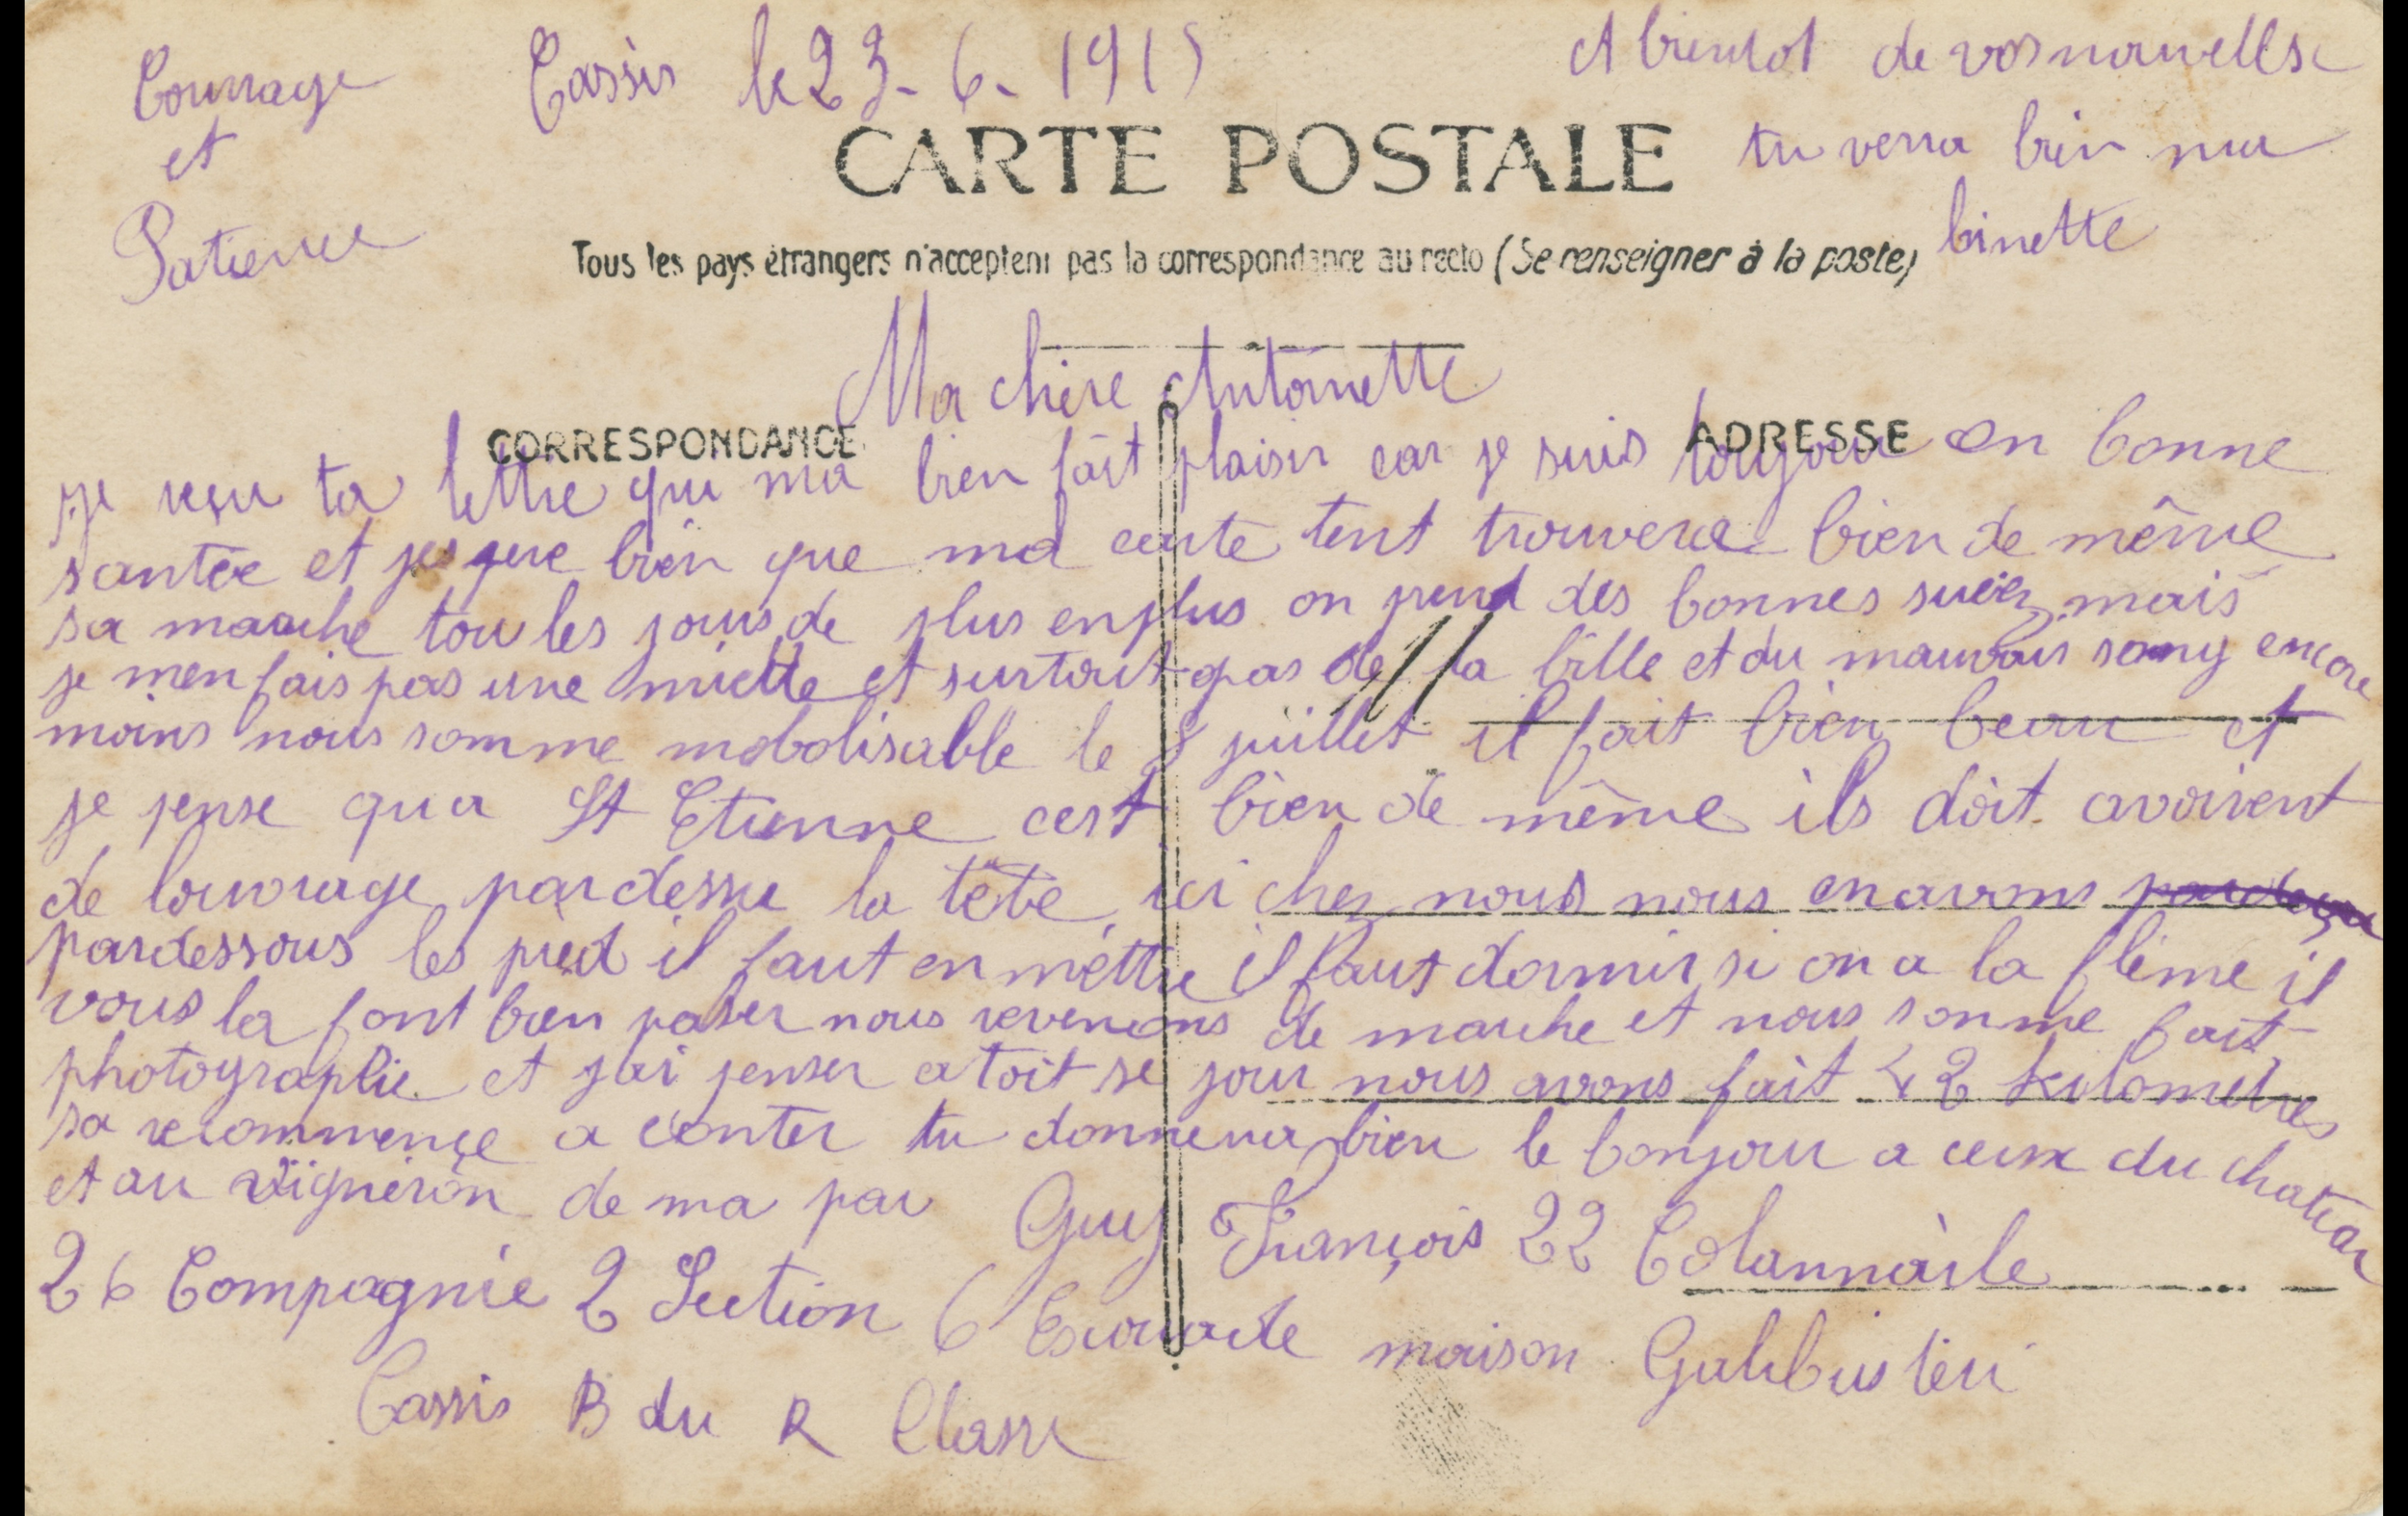 Courrage
et
Patience
Cassis le 23-6-1915
A bientot de vos nouvelles
tu verra bien ma
binette
CARTE POSTALE
Tous les pays étrangers n'acceptent pas la correspondance au recto (Se renseigner à la poste)
Ma chère Antoinette
CORRESPONDANCE
ADRESSE
je reçu ta lettre qui ma bien fait plaisir car je suis toujour en bonne
santée et jespere bien que ma carte tent trouvera bien de même
sa marche tou les jours de plus en plus on prend des bonnes mais
je men fais pas une miette et surtout pas de la bille et du mauvais sang encore
moins nous somme mobolisable le 8 juillet il fait bien beau et
je pense qu a St Etienne cest bien de même ils doit avoirent
de louvrage par dessu la tête ici chez nous nous en avons
pardessous les pied il faut en mettre il faut dormir si on a la fleme il
vous la font bien passer nous revenions de marche et nous somme fait
photographie et jai penser a toit se jour nous avons fait 42 kilometres
sa recommençe a conter tu donnera bien le bonjour a ceux du chateau
et au vigneron de ma par Guy François 22 Colonniale
26 Compagnie 2 Section 6 Escouade maison
Cassis B du R Classe